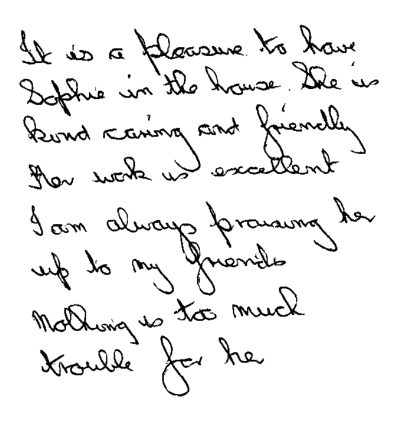 It is a pleasure to have
Sophie in the house. She is
kind caring and friendly
Her work is excellent
I am always praising her
up to my friends
Nothing is too much
trouble for her